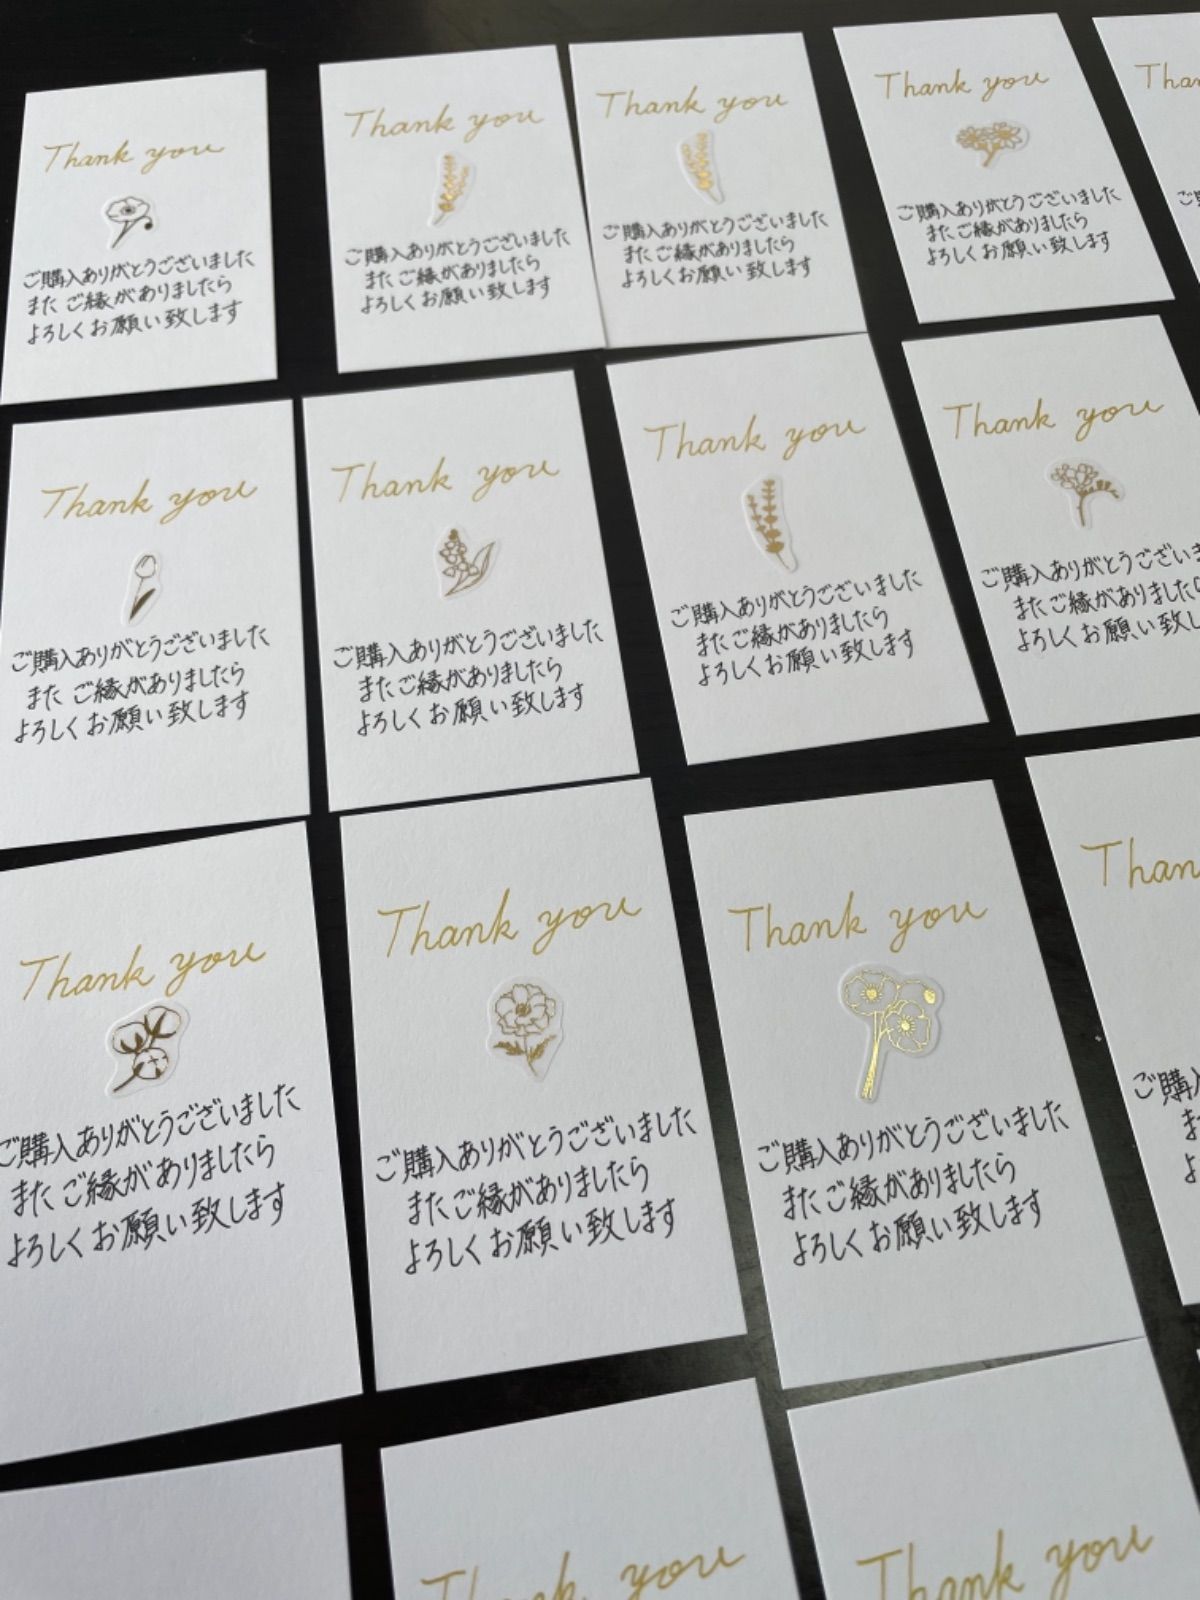 Thank you
ご購入ありがとうございました
また ご縁がありましたら
よろしくお願い致します
Thank you
ご購入ありがとうございました
また ご縁がありましたら
よろしくお願い致します
Thank you
ご購入ありがとうございました
また ご縁がありましたら
よろしくお願い致します
Thank you
ご購入ありがとうございました
また ご縁がありましたら
よろしくお願い致します
Thank you
ご購入ありがとうございました
また ご縁がありましたら
よろしくお願い致します
Thank you
ご購入ありがとうございました
また ご縁がありましたら
よろしくお願い致します
Thank you
ご購入ありがとうございました
また ご縁がありましたら
よろしくお願い致します
Thank you
ご購入ありがとうございま
また ご縁がありましたら
よろしくお願い致し
Thank you
ご購入ありがとうございました
また ご縁がありましたら
よろしくお願い致します
Thank you
ご購入ありがとうございました
また ご縁がありましたら
よろしくお願い致します
Thank you
ご購入ありがとうございました
また ご縁がありましたら
よろしくお願い致します
ご購
Thank you
Thank you